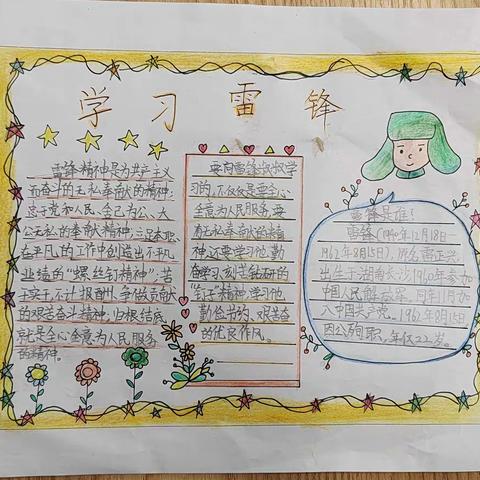 学习雷锋
雷锋精神是为共产主义
而奋斗的无私奉献的精神;
忠于党和人民、舍己为公、大
公无私的奉献精神;立足本职、
在平凡的工作中创造出不平凡
业绩的“螺丝钉精神”;苦
干实干、不计报酬、争做贡献
的艰苦奋斗精神,归根结底,
就是全心全意为人民服务
的精神。
要向雷锋叔叔学
习的,不仅仅是要全心
全意为人民服务,要
有无私奉献的精
神,还要学习他勤
奋学习,刻苦钻研的
“钉子”精神,学习他
勤俭节约、艰苦奋
的优良作风。
雷锋是谁?
雷锋(1940年12月18日-
1962年8月15日),原名雷正兴,
出生于湖南长沙,1960年参加
中国人民解放军,同年11月加
入中国共产党。1962年8月15日
因公殉职,年仅22岁。